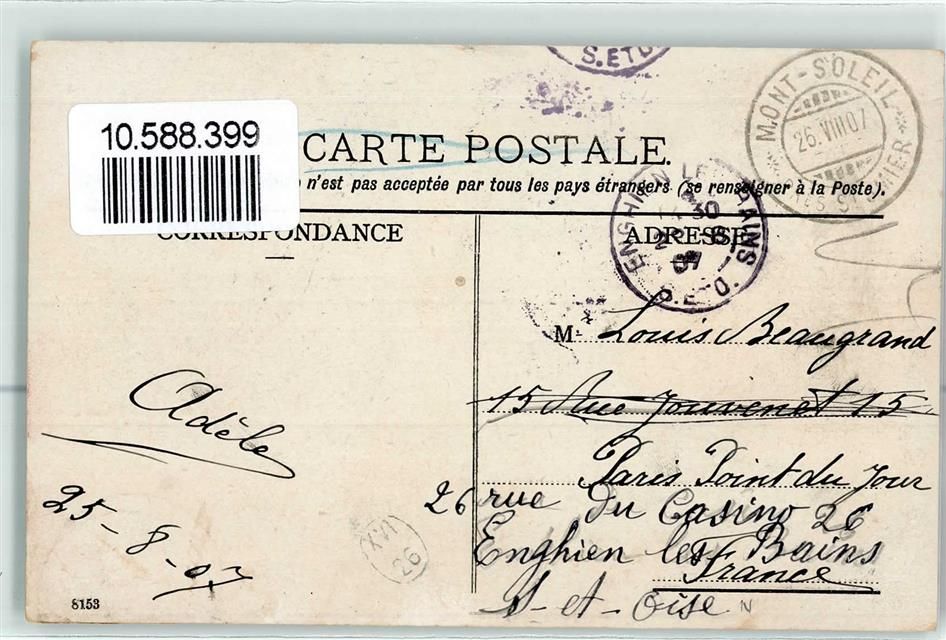 S. ET O.
10.588.399
CARTE POSTALE.
n'est pas acceptée par tous les pays étrangers (se renseigner à la Poste).
CORRESPONDANCE
ADRESSE
MONT-SOLEIL
26.VIII 07
ENGHIEN LES BAINS
30
07
S.-E-O.
M. Louis Beaugrand
15 Rue Jouvenet 15
Paris Point du Jour
26 rue du Casino 26
Enghien les Bains
France
S-et-Oise
N
Adèle
25-8-07
XVI
26
8153